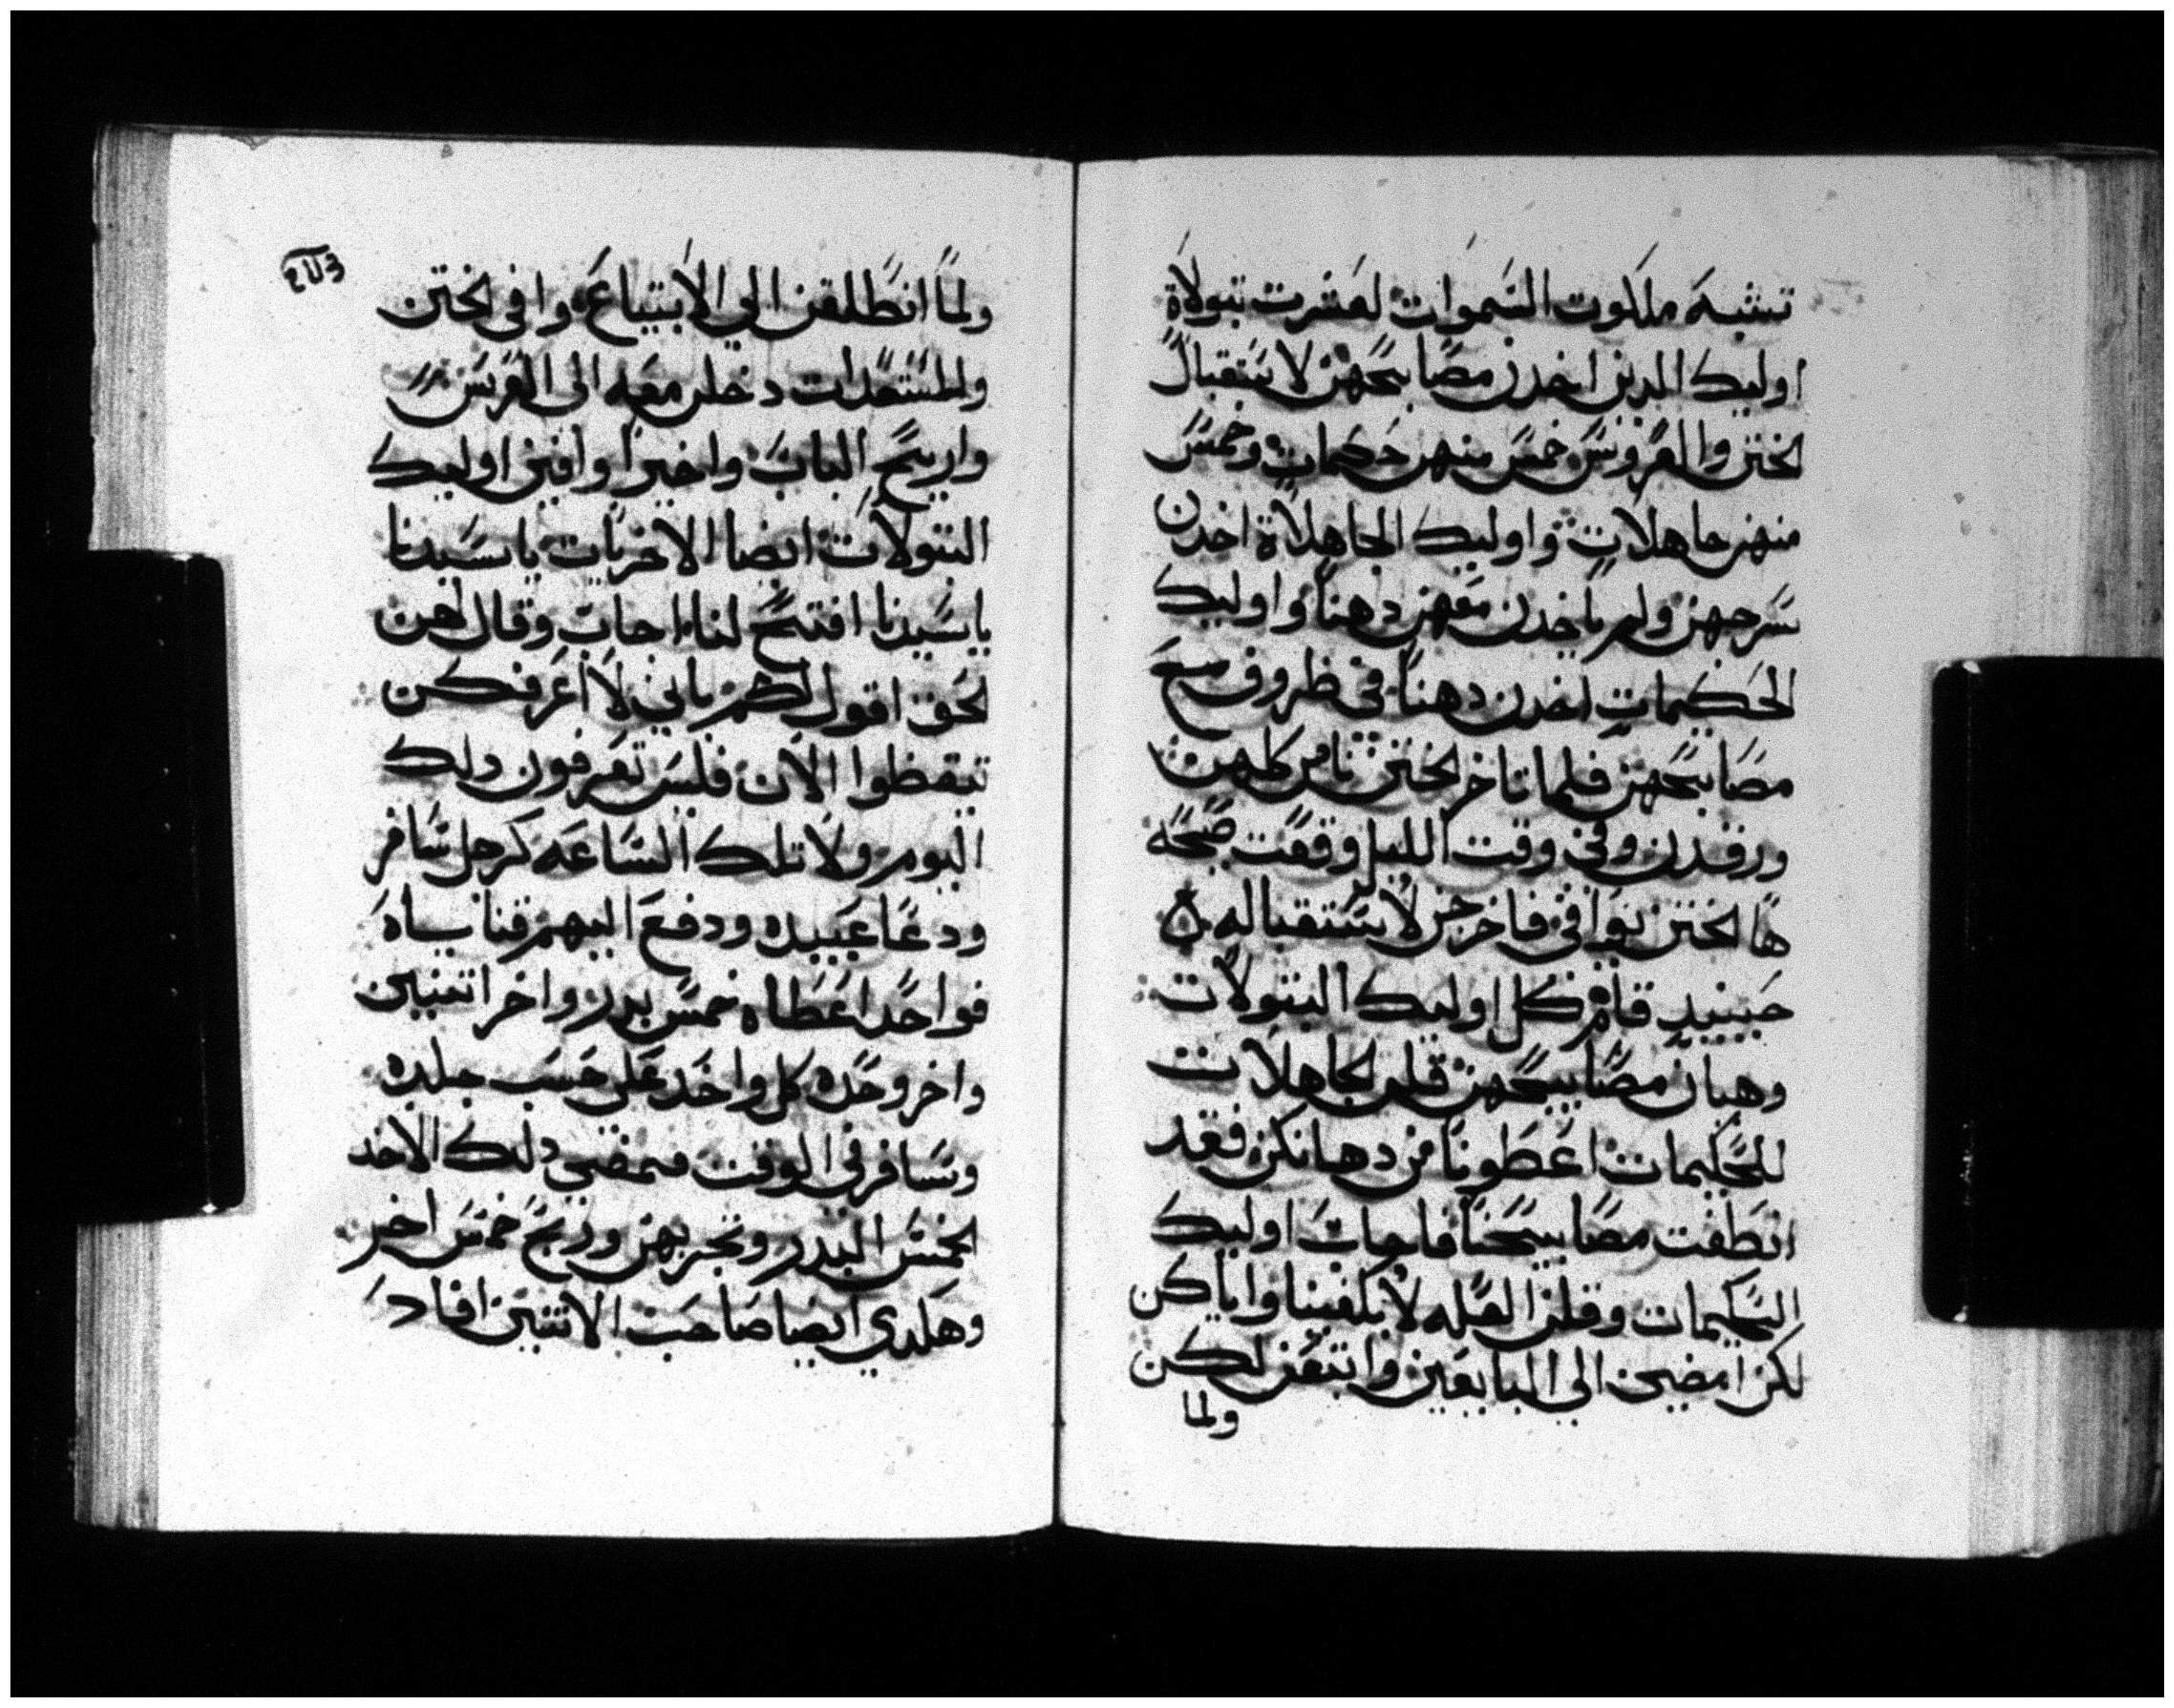 تشبه ملكوت السموات لعشرت بتولاة
اوليك الدين اخدن مصابيحهن لاستقبال
الختن والعروس خمس منهن حكيمات وخمس
منهن جاهلات واوليك الجاهلاة اخدن
سرجهن ولم ياخدن معهن دهنا واوليك
الحكيمات اخدن دهنا في ظروف مع
مصابيحهن فلما تاخر الختن نامن كلهن
ورقدن وفي وقت الليل وقعت صيحة
ها الختن يوافي فاخرجن لاستقباله
حينيد قامن كل اوليك البتولات
وهيان مصابيحهن قلن الجاهلات
للحكيمات اعطونا من دهانكن فقد
انطفت مصابيحنا فاجات اوليك
الحكيمات وقلن العله لا يكفينا واياكن
لكن امضين الي البايعين وابتعن لكن
ولما
ولما انطلقن الي الابتياع وافي الختن
والمستعدات دخلن معه الى العرس
واريتج الباب واخيرا وافين اوليك
البتولات ايضا الاخريات يا سيدنا
يا سيدنا افتح لنا اجاب وقال لهن
الحق اقول لكم باني لا اعرفكن
تيقظوا الان فليس تعرفون دلك
اليوم ولا تلك الساعه كرجل سافر
ودعا عبيده ودفع اليهم قنايباه
فواحدا اعطاه خمس بدر واخر اتنين
واخر وحده كل واحد على حسب جلده
وسافر في الوقت فمضي دلك الاخد
الخمس البدر وتجر بهن وربح خمس اخر
وهكدي ايضا صاحب الاتنين افاد